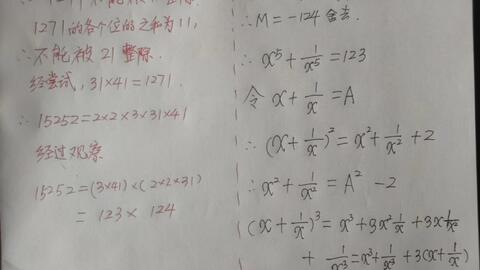 1271的各个位的之和为11,
∴不能被21整除.
经尝试, 31×41=1271.
∴15252=2×2×3×31×41
经过观察
15252=(3×41)×(2×2×31)
= 123 × 124
∴M=-124舍去.
∴x⁵+1/x⁵=123
令 x+1/x=A
∴(x+1/x)²=x²+1/x²+2
∴x²+1/x²=A²-2
(x+1/x)³=x³+3x²1/x+3x1/x²
+1/x³=x³+1/x³+3(x+1/x)